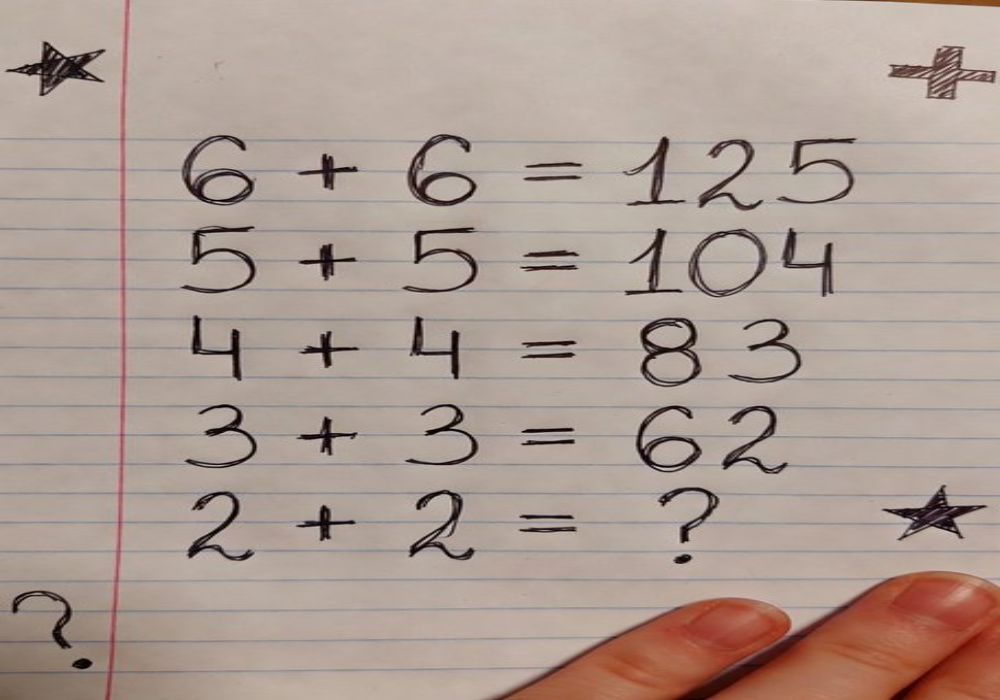 6 + 6 = 125
5 + 5 = 104
4 + 4 = 83
3 + 3 = 62
2 + 2 = ?
?